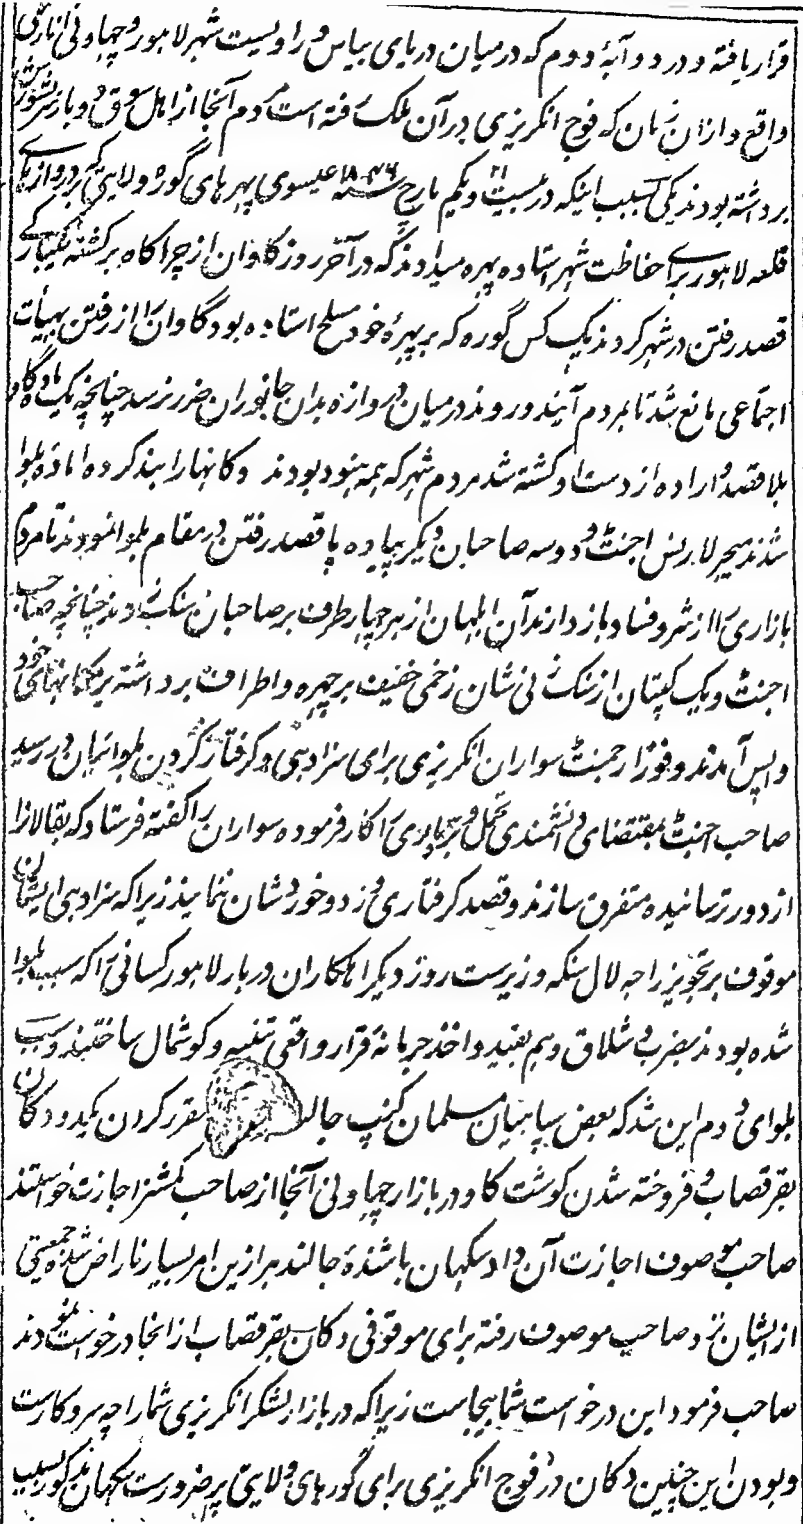 قرار یافته و در دوآبهٔ دوم که درمیان دریای بیاس و راویست شهر لاهور و چهاونی انارکلی
واقع و ازان زمان که فوج انگریزی در آن ملک رفته است مردم آنجا از اهل سوق دو بار سر شورش
برداشته بودند یکی بسبب اینکه در بیست و یکم مارچ سنه ۱۸۴۶ عیسوی پهرهای گوره ولایتی که بر دروازهای
قلعه لاهور برای حفاظت شهر استاده پهره میدادند که در آخر روز گاوان از چراگاه برگشته یکبارگی
قصد رفتن در شهر کردند یک کس گوره که بر پهرهٔ خود مسلح استاده بود گاوان را از رفتن بهیأت
اجتماعی مانع شد تا مردم آیند و روند درمیان دروازه بدان جانوران ضرر نرسد چنانچه یک ماده گاو
بلا قصد و اراده از دست او کشته شد مردم شهر که همه هنود بودند دکانها را بند کرده امادهٔ بلوا
شدند میجر لارنس اجنٹ و دو سه صاحبان دیگر پیاده پا قصد رفتن در مقام بلوا نمودند تا مردم
بازاری را از شر و فساد باز دارند آن ابلهان از هر چهار طرف بر صاحبان سنگ زدند چنانچه صاحب
اجنٹ و یک کپتان از سنگ زنی شان زخمی خفیف بر چهره و اطراف برداشته بر مکانهای خود
واپس آمدند و فوراً رجمنٹ سواران انگریزی برای سزادهی و گرفتار کردن بلوائیان در رسید
صاحب اجنٹ بمقتضای دانشمندی تحمل و بردباری را کار فرموده سواران را گفته فرستاد که بقالان را
از دور ترسانیده متفرق سازند و قصد گرفتاری و زد و خورد شان ننمایند زیرا که سزادهی ایشان
موقوف بر تجویز راجه لال سنگه وزیرست روز دیگر اهلکاران دربار لاهور کسانی را که سبب بلوا
شده بودند بضرب شلاق و هم بقید و اخذ جرمانه قرار واقعی تنبیه و گوشمال ساختند و سبب
بلوای دوم این شد که بعض سپاهیان مسلمان کنپ جالندهر مقرر کردن یکدو دکان
بقر قصاب و فروخته شدن گوشت گاو در بازار چهاونی آنجا از صاحب کمشنر اجازت خواستند
صاحب موصوف اجازت آن داد سکهان باشندهٔ جالندهر ازین امر بسیار ناراض شده جمعیتی
از ایشان نزد صاحب موصوف رفته برای موقوفی دکان بقر قصاب از انجا درخواست نمودند
صاحب فرمود این درخواست شما بیجاست زیرا که در بازار لشکر انگریزی شما را چه سروکارست
و بودن این چنین دکان در فوج انگریزی برای گورهای ولایتی پر ضرورست سکهان مذکور بسبب